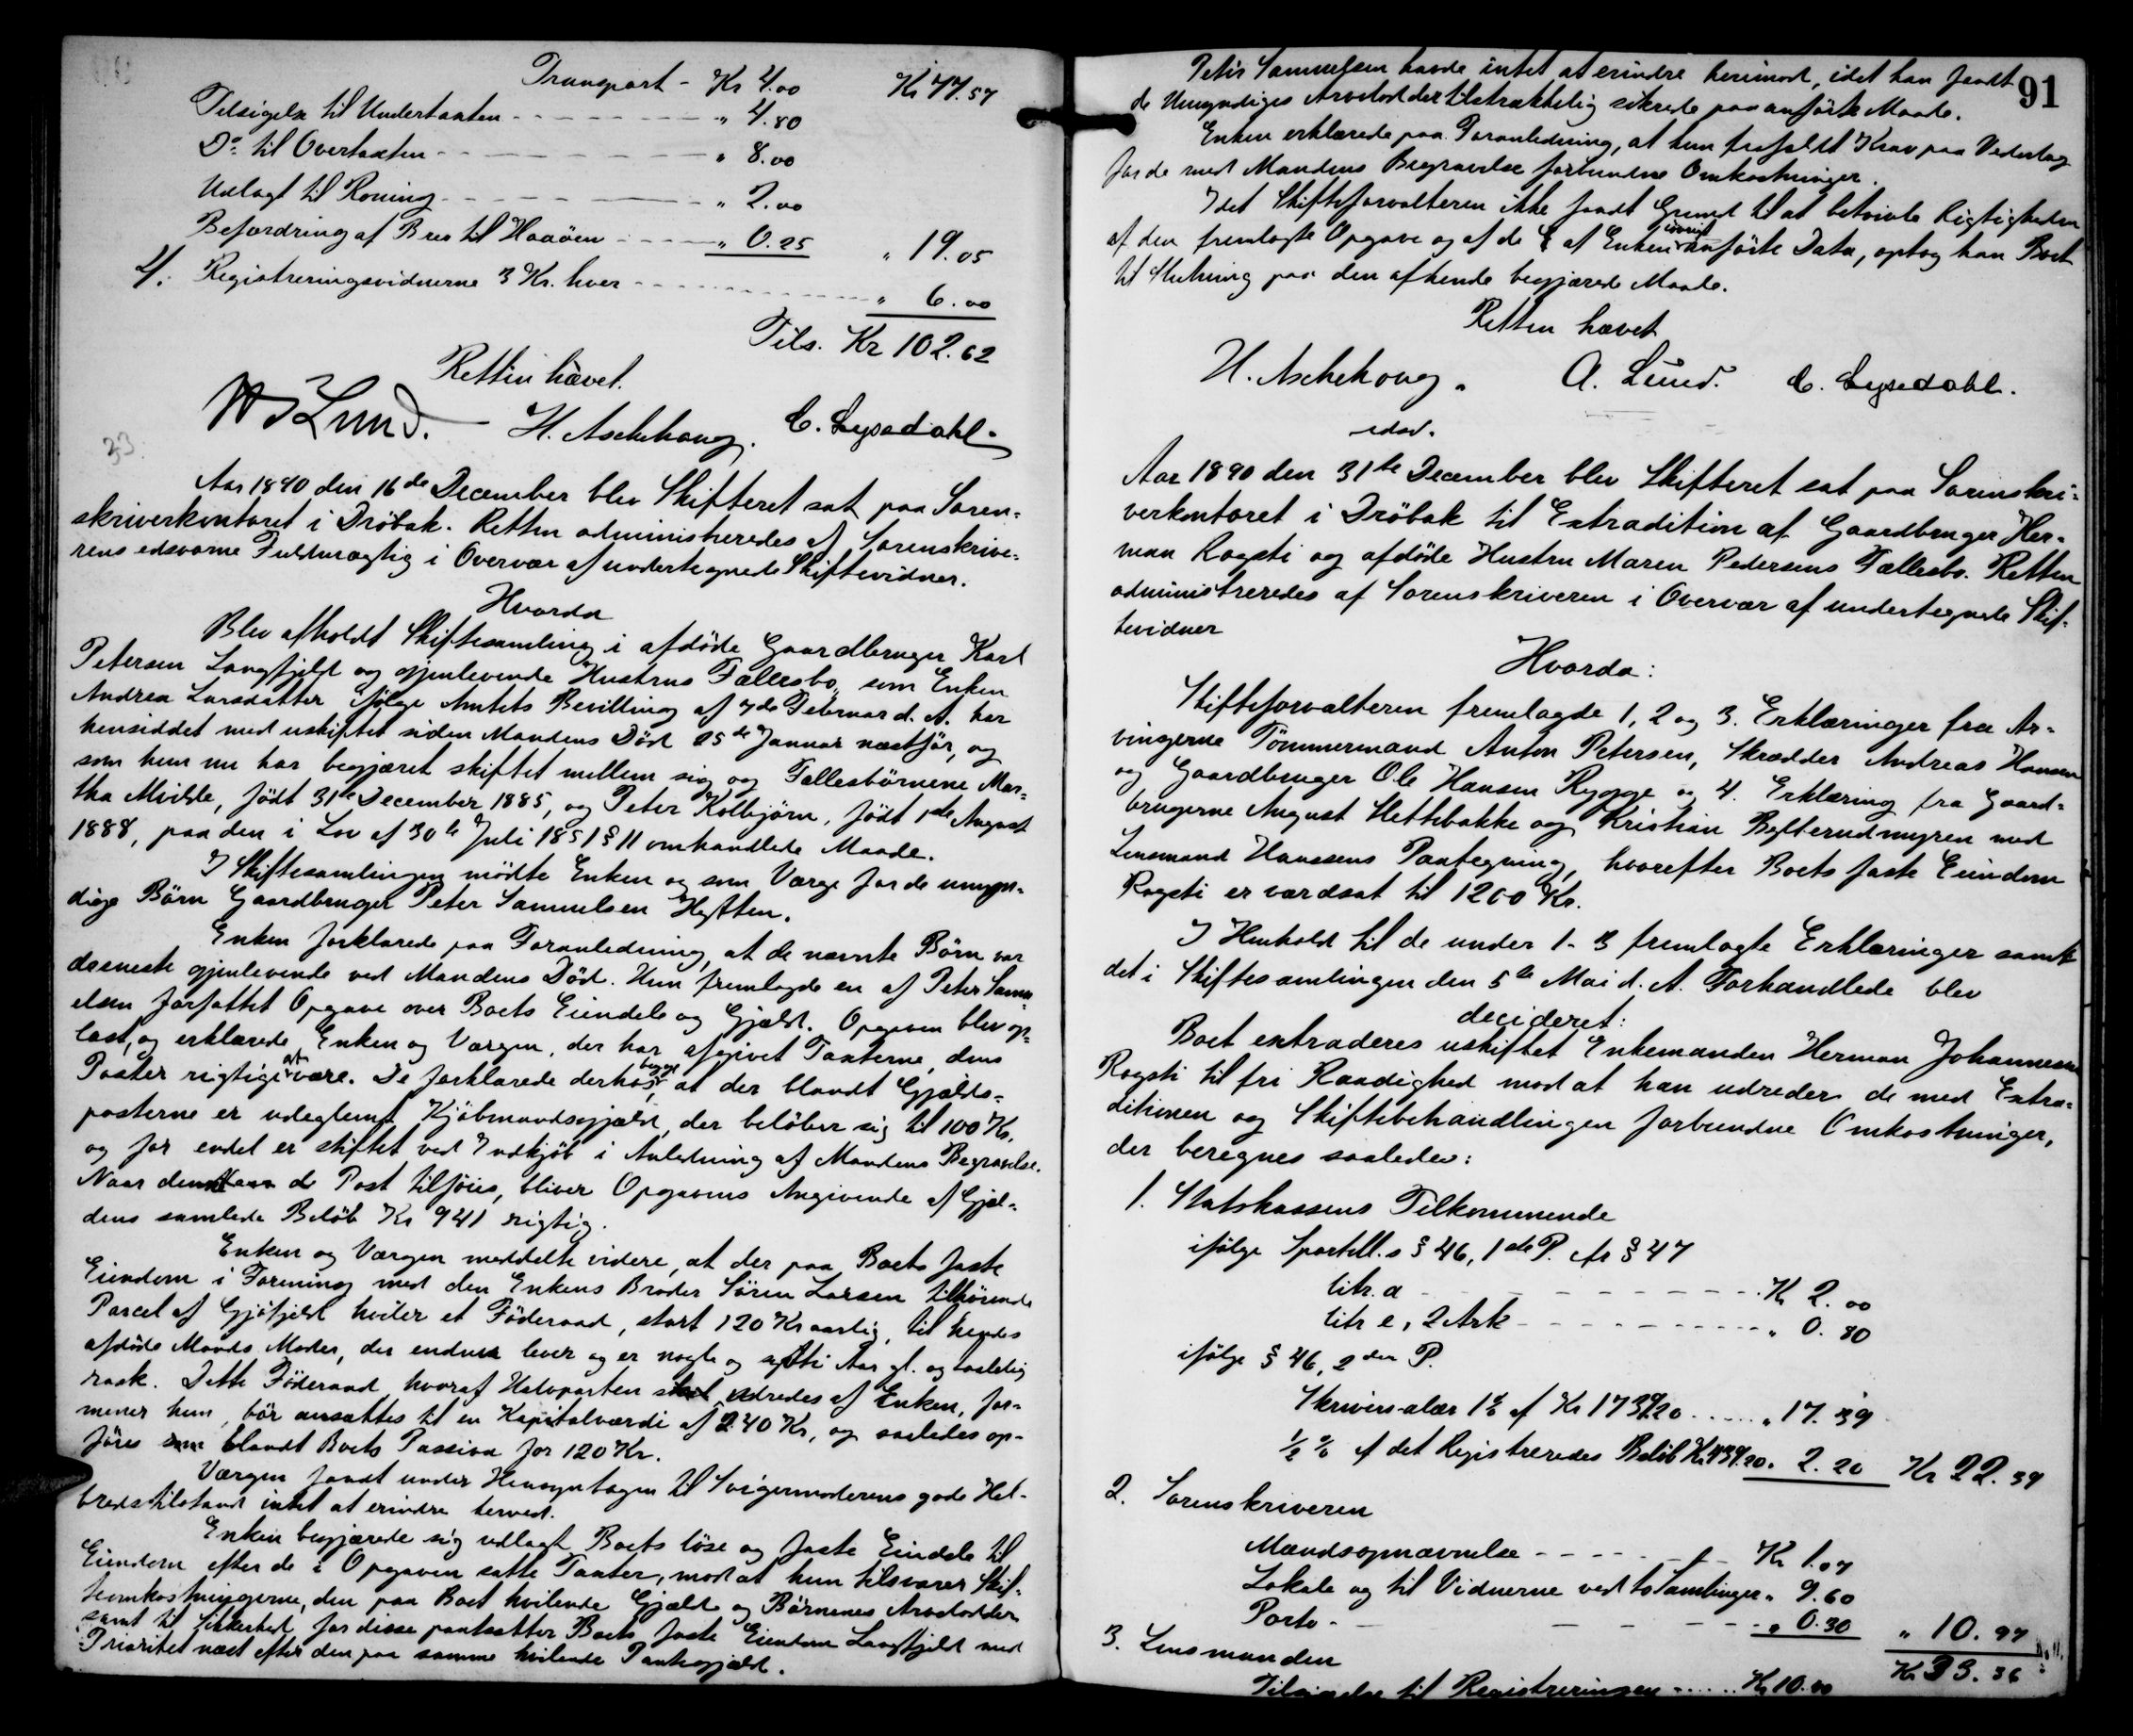 Transport - Kr 4.00 Kr 77.57
Tilsigelse til Undertaxten - - - " 4.80
Do til Overtaxten - - - " 8.00
Udlagt til Roning - - - " 2.00
Befordring af Brev til Haaøen - - - " 0.25 " 19.05
4. Registreringsvidnerne 3 Kr. hver - - - " 6.00
Tils. Kr 102.62
Retten hævet.
Lund. H. Aschehoug. C. Lysedahl
33.
Aar 1890 den 16de December blev Skifteret sat paa Soren-
skriverkontoret i Drøbak. Retten administreredes af Sorenskrive-
rens edsvorne Fuldmægtig i Overvær af undertegnede Skiftevidner.
Hvorda
Blev afholdt Skiftesamling i afdøde Gaardbruger Karl
Petersen Langfjeld og gjenlevende Hustrus Fællesbo, som Enken
Andrea Larsdatter ifølge Amtets Bevilling af 7de Februar d. A. har
hensiddet med uskiftet siden Mandens Død 25de Januar næstfør, og
som hun nu har begjæret skiftet mellem sig og Fællesbørnene Mar-
tha Milde, født 31te December 1885, og Peter Kolbjørn, født 1ste August
1888, paa den i Lov af 30te Juli 1851 § 11 omhandlede Maade.
I Skiftesamlingen mødte Enken og som Værge for de umyn-
dige Børn Gaardbruger Peter Samuelsen Hgften.
Enken forklarede paa Foranledning, at de nævnte Børn var
de eneste gjenlevende ved Mandens Død. Hun fremlagde en af Peter Samu-
elsen forfattet Opgave over Boets Eiendele og Gjæld. Opgaven blev op-
læst, og erklærede Enken og Værgen, der har afgivet Taxterne, dens
Poster rigtige at være. De forklarede derhos begge, at der blandt Gjælds-
posterne er udeglemt Kjøbmandsgjæld, der beløber sig til 100 Kr.
og for endel er stiftet ved Indkjøb i Anledning af Mandens Begravelse.
Naar denne de Post tilføies, bliver Opgavens Angivende af Gjæl-
dens samlede Beløb Kr 941 rigtig.
Enken og Værgen meddelte videre, at der paa Boets faste
Eiendom i Forening med den Enkens Broder Søren Larsen tilhørende
Parcel af Gjøfjeld hviler et Føderaad, stort 120 Kr aarlig, til hendes
afdøde Mands Moder, der endnu lever og er nogle og sytti Aar gl. og taalelig
rask. Dette Føderaad hvoraf Halvparten skal udredes af Enken, for-
mener hun, bør ansættes til en Kapitalværdi af 240 Kr, og saaledes op-
føres blandt Boets Passiva for 120 Kr.
Værgen fandt under Hensyntagen til Svigermoderens gode Hel-
bredstilstand intet at erindre herved.
Enken begjærede sig udlagt Boets løse og faste Eiendele til
Eiendom efter de i Opgaven satte Taxter, mod at hun tilsvarer Skif-
teomkostningerne, den paa Boet hvilende Gjæld og Børnenes Arvelodder
samt til Sikkerhed for disse pantsætter Boets faste Eiendom Langfjeld med
Prioritet næst efter den paa samme hvilende Pantegjæld.
91
Peter Samuelsen havde intet at erindre herimod, idet han fandt
de Umyndiges Arvelodder tilstrækkelig sikrede paa anførte Maade.
Enken erklærede paa Foranledning, at hun frafaldt Krav paa Vederlag
for de med Mandens Begravelse forbundne Omkostninger.
Idet Skifteforvalteren ikke fandt Grund til at betvivle Rigtigheden
af den fremlagte Opgave og af de af Enken iøvrigt anførte Data, optog han Boet
til Slutning paa den af hende begjærede Maade.
Retten hævet
H. Aschehoug. A. Lund. C. Lysedahl.
edsv.
Aar 1890 den 31te December blev Skifteret sat paa Sorenskri-
verkontoret i Drøbak til Extradition af Gaardbruger Her-
man Rogsti og afdøde Hustru Maren Pedersens Fællesbo. Retten
administreredes af Sorenskriveren i Overvær af undertegnede Skif-
tevidner
Hvorda:
Skifteforvalteren fremlagde 1, 2 og 3. Erklæringer fra Ar-
vingerne Tømmermand Anton Petersen, Skrædder Andreas Hansen
og Gaardbruger Ole Hansen Rygge og 4. Erklæring fra Gaard-
brugerne August Hethbakke og Kristian Bæfterudmyren med
Lensmand Hanssens Paategning, hvorefter Boets faste Eiendom
Rogsti er værdsat til 1200 Kr.
I Henhold til de under 1-3 fremlagte Erklæringer samt
det i Skiftesamlingen den 5te Mai d. A. Forhandlede blev
decideret:
Boet extraderes uskiftet Enkemanden Herman Johannesen
Rogsti til fri Raadighed mod at han udreder de med Extra-
ditionen og Skiftebehandlingen forbundne Omkostninger,
der beregnes saaledes:
1. Statskassens Tilkommende
ifølge Sportell.s § 46, 1ste P. cfr § 47
litr. a - - - Kr 2.00
litr e, 2 Ark - - - " 0.80
ifølge § 46, 2den P.
Skriversalær 1% af Kr 1739.20 ... " 17.39
½ % af det Registreredes Beløb Kr 439.20 " 2.20 Kr 22.39
2. Sorenskriveren
Mændsopnævnelse - - - Kr 1.07
Lokale og til Vidnerne ved to Samlinger " 9.60
Porto - - - " 0.30 " 10.97
3. Lensmanden Kr 33.36
Tilsigelse til Registreringen ..... Kr 10.00